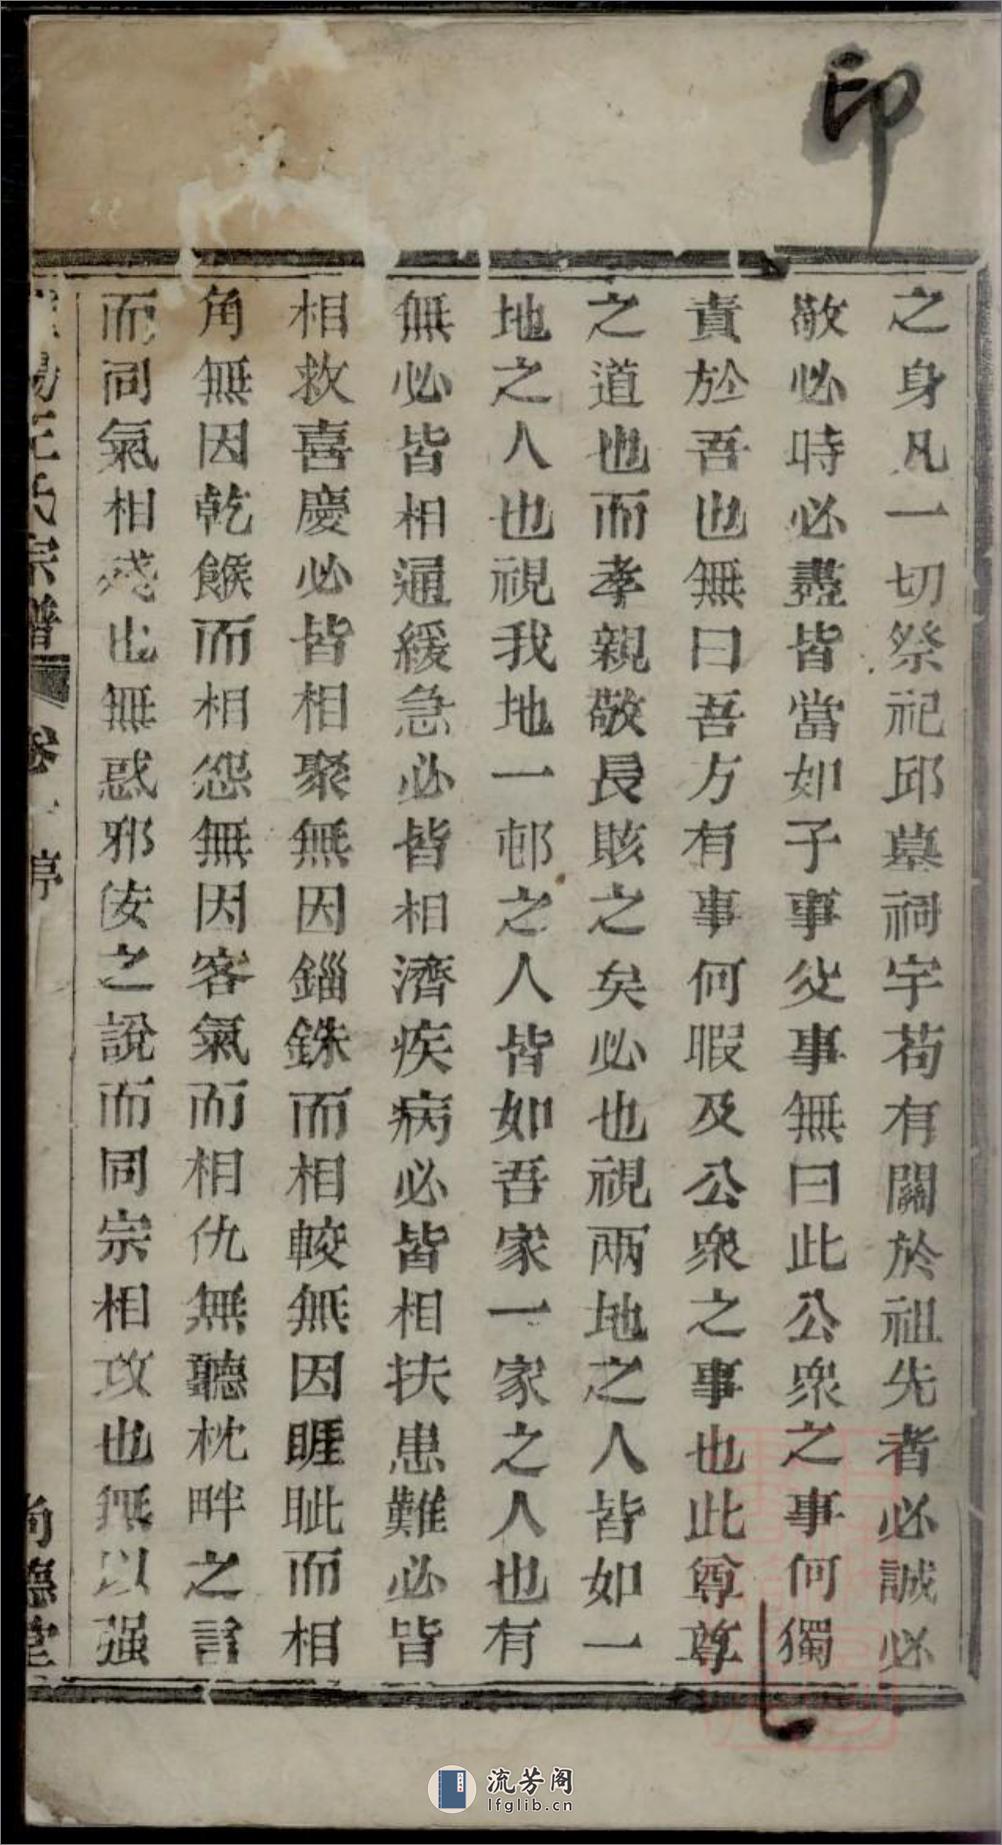 印
之身凡一切祭祀邱墓祠宇苟有關於祖先者必誠必
敬必時必盡皆當如子事父事無曰此公衆之事何獨
責於吾也無曰吾方有事何暇及公衆之事也此尊尊
之道也而孝親敬長賅之矣必也視兩地之人皆如一
地之人也視我地一邨之人皆如吾家一家之人也有
無必皆相通緩急必皆相濟疾病必皆相扶患難必皆
相救喜慶必皆相聚無因錙銖而相較無因睚眦而相
角無因乾餱而相怨無因客氣而相仇無聽枕畔之言
而同氣相殘也無惑邪佞之說而同宗相攻也無以强
陽王氏宗譜 卷 尚德堂
流芳阁
lfglib.cn